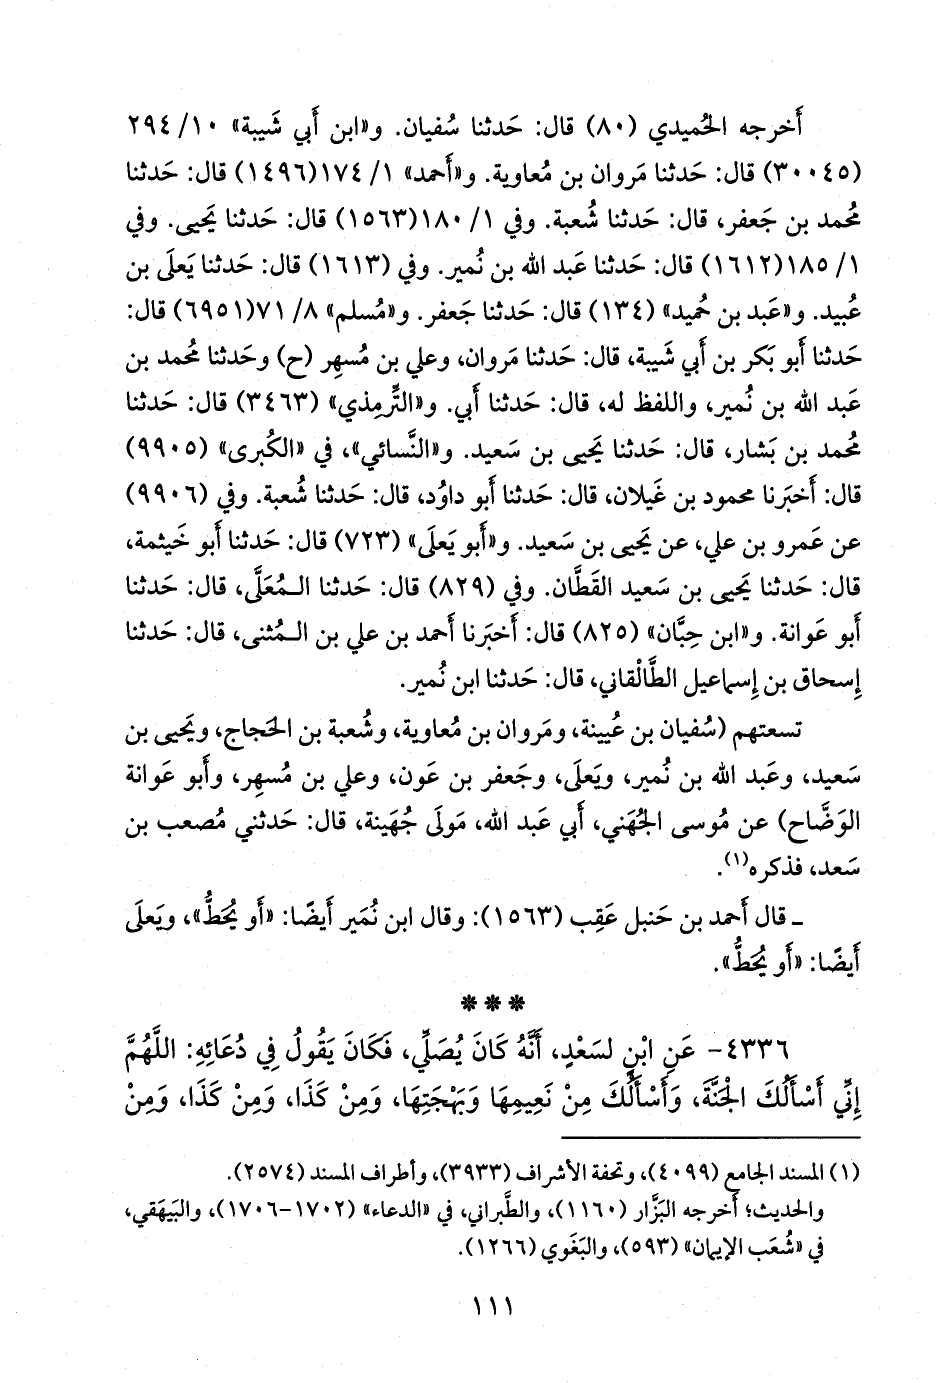 أَخرجه الحُميدي (٨٠) قال: حَدثنا سُفيان. و«ابن أَبي شَيبة» ١٠/ ٢٩٤
(٣٠٠٤٥) قال: حَدثنا مَروان بن مُعاوية. و«أَحمد» ١/ ١٧٤(١٤٩٦) قال: حَدثنا
مُحمد بن جَعفر، قال: حَدثنا شُعبة. وفي ١/ ١٨٠(١٥٦٣) قال: حَدثنا يَحيى. وفي
١/ ١٨٥(١٦١٢) قال: حَدثنا عَبد الله بن نُمير. وفي (١٦١٣) قال: حَدثنا يَعلَى بن
عُبيد. و«عَبد بن حُميد» (١٣٤) قال: حَدثنا جَعفر. و«مُسلم» ٨/ ٧١(٦٩٥١) قال:
حَدثنا أَبو بَكر بن أَبي شَيبة، قال: حَدثنا مَروان، وعلي بن مُسهِر (ح) وحَدثنا مُحمد بن
عَبد الله بن نُمير، واللفظ له، قال: حَدثنا أَبي. و«التِّرمِذي» (٣٤٦٣) قال: حَدثنا
مُحمد بن بَشار، قال: حَدثنا يَحيى بن سَعيد. و«النَّسائي»، في «الكُبرى» (٩٩٠٥)
قال: أَخبَرنا محمود بن غَيلان، قال: حَدثنا أَبو داوُد، قال: حَدثنا شُعبة. وفي (٩٩٠٦)
عن عَمرو بن علي، عن يَحيى بن سَعيد. و«أَبو يَعلَى» (٧٢٣) قال: حَدثنا أَبو خَيثمة،
قال: حَدثنا يَحيى بن سَعيد القَطَّان. وفي (٨٢٩) قال: حَدثنا الـمُعَلَّى، قال: حَدثنا
أَبو عَوانة. و«ابن حِبَّان» (٨٢٥) قال: أَخبَرنا أَحمد بن علي بن الـمُثنى، قال: حَدثنا
إِسحاق بن إِسماعيل الطَّالْقاني، قال: حَدثنا ابن نُمير.
تسعتهم (سُفيان بن عُيينة، ومَروان بن مُعاوية، وشُعبة بن الحَجاج، ويَحيى بن
سَعيد، وعَبد الله بن نُمير، ويَعلَى، وجَعفر بن عَون، وعلي بن مُسهِر، وأَبو عَوانة
الوَضَّاح) عن مُوسى الجُهَني، أَبي عَبد الله، مَولَى جُهَينة، قال: حَدثني مُصعب بن
سَعد، فذكره(١).
ـ قال أَحمد بن حَنبل عَقِب (١٥٦٣): وقال ابن نُمَير أَيضًا: «أَو يُحَطُّ»، ويَعلَى
أَيضًا: «أَو يُحَطُّ».
* * *
٤٣٣٦- عَنِ ابْنٍ لسَعْدٍ، أَنَّهُ كَانَ يُصَلِّي، فَكَانَ يَقُولُ فِي دُعَائِهِ: اللَّهُمَّ
إِنِّي أَسْأَلُكَ الْجَنَّةَ، وَأَسْأَلُكَ مِنْ نَعِيمِهَا وَبَهْجَتِهَا، وَمِنْ كَذَا، وَمِنْ كَذَا، وَمِنْ
(١) المسند الجامع (٤٠٩٩)، وتحفة الأشراف (٣٩٣٣)، وأطراف المسند (٢٥٧٤).
والحديث؛ أَخرجه البَزَّار (١١٦٠)، والطَّبراني، في «الدعاء» (١٧٠٢-١٧٠٦)، والبَيهَقي،
في «شُعَب الإيمان» (٥٩٣)، والبَغَوي (١٢٦٦).
١١١